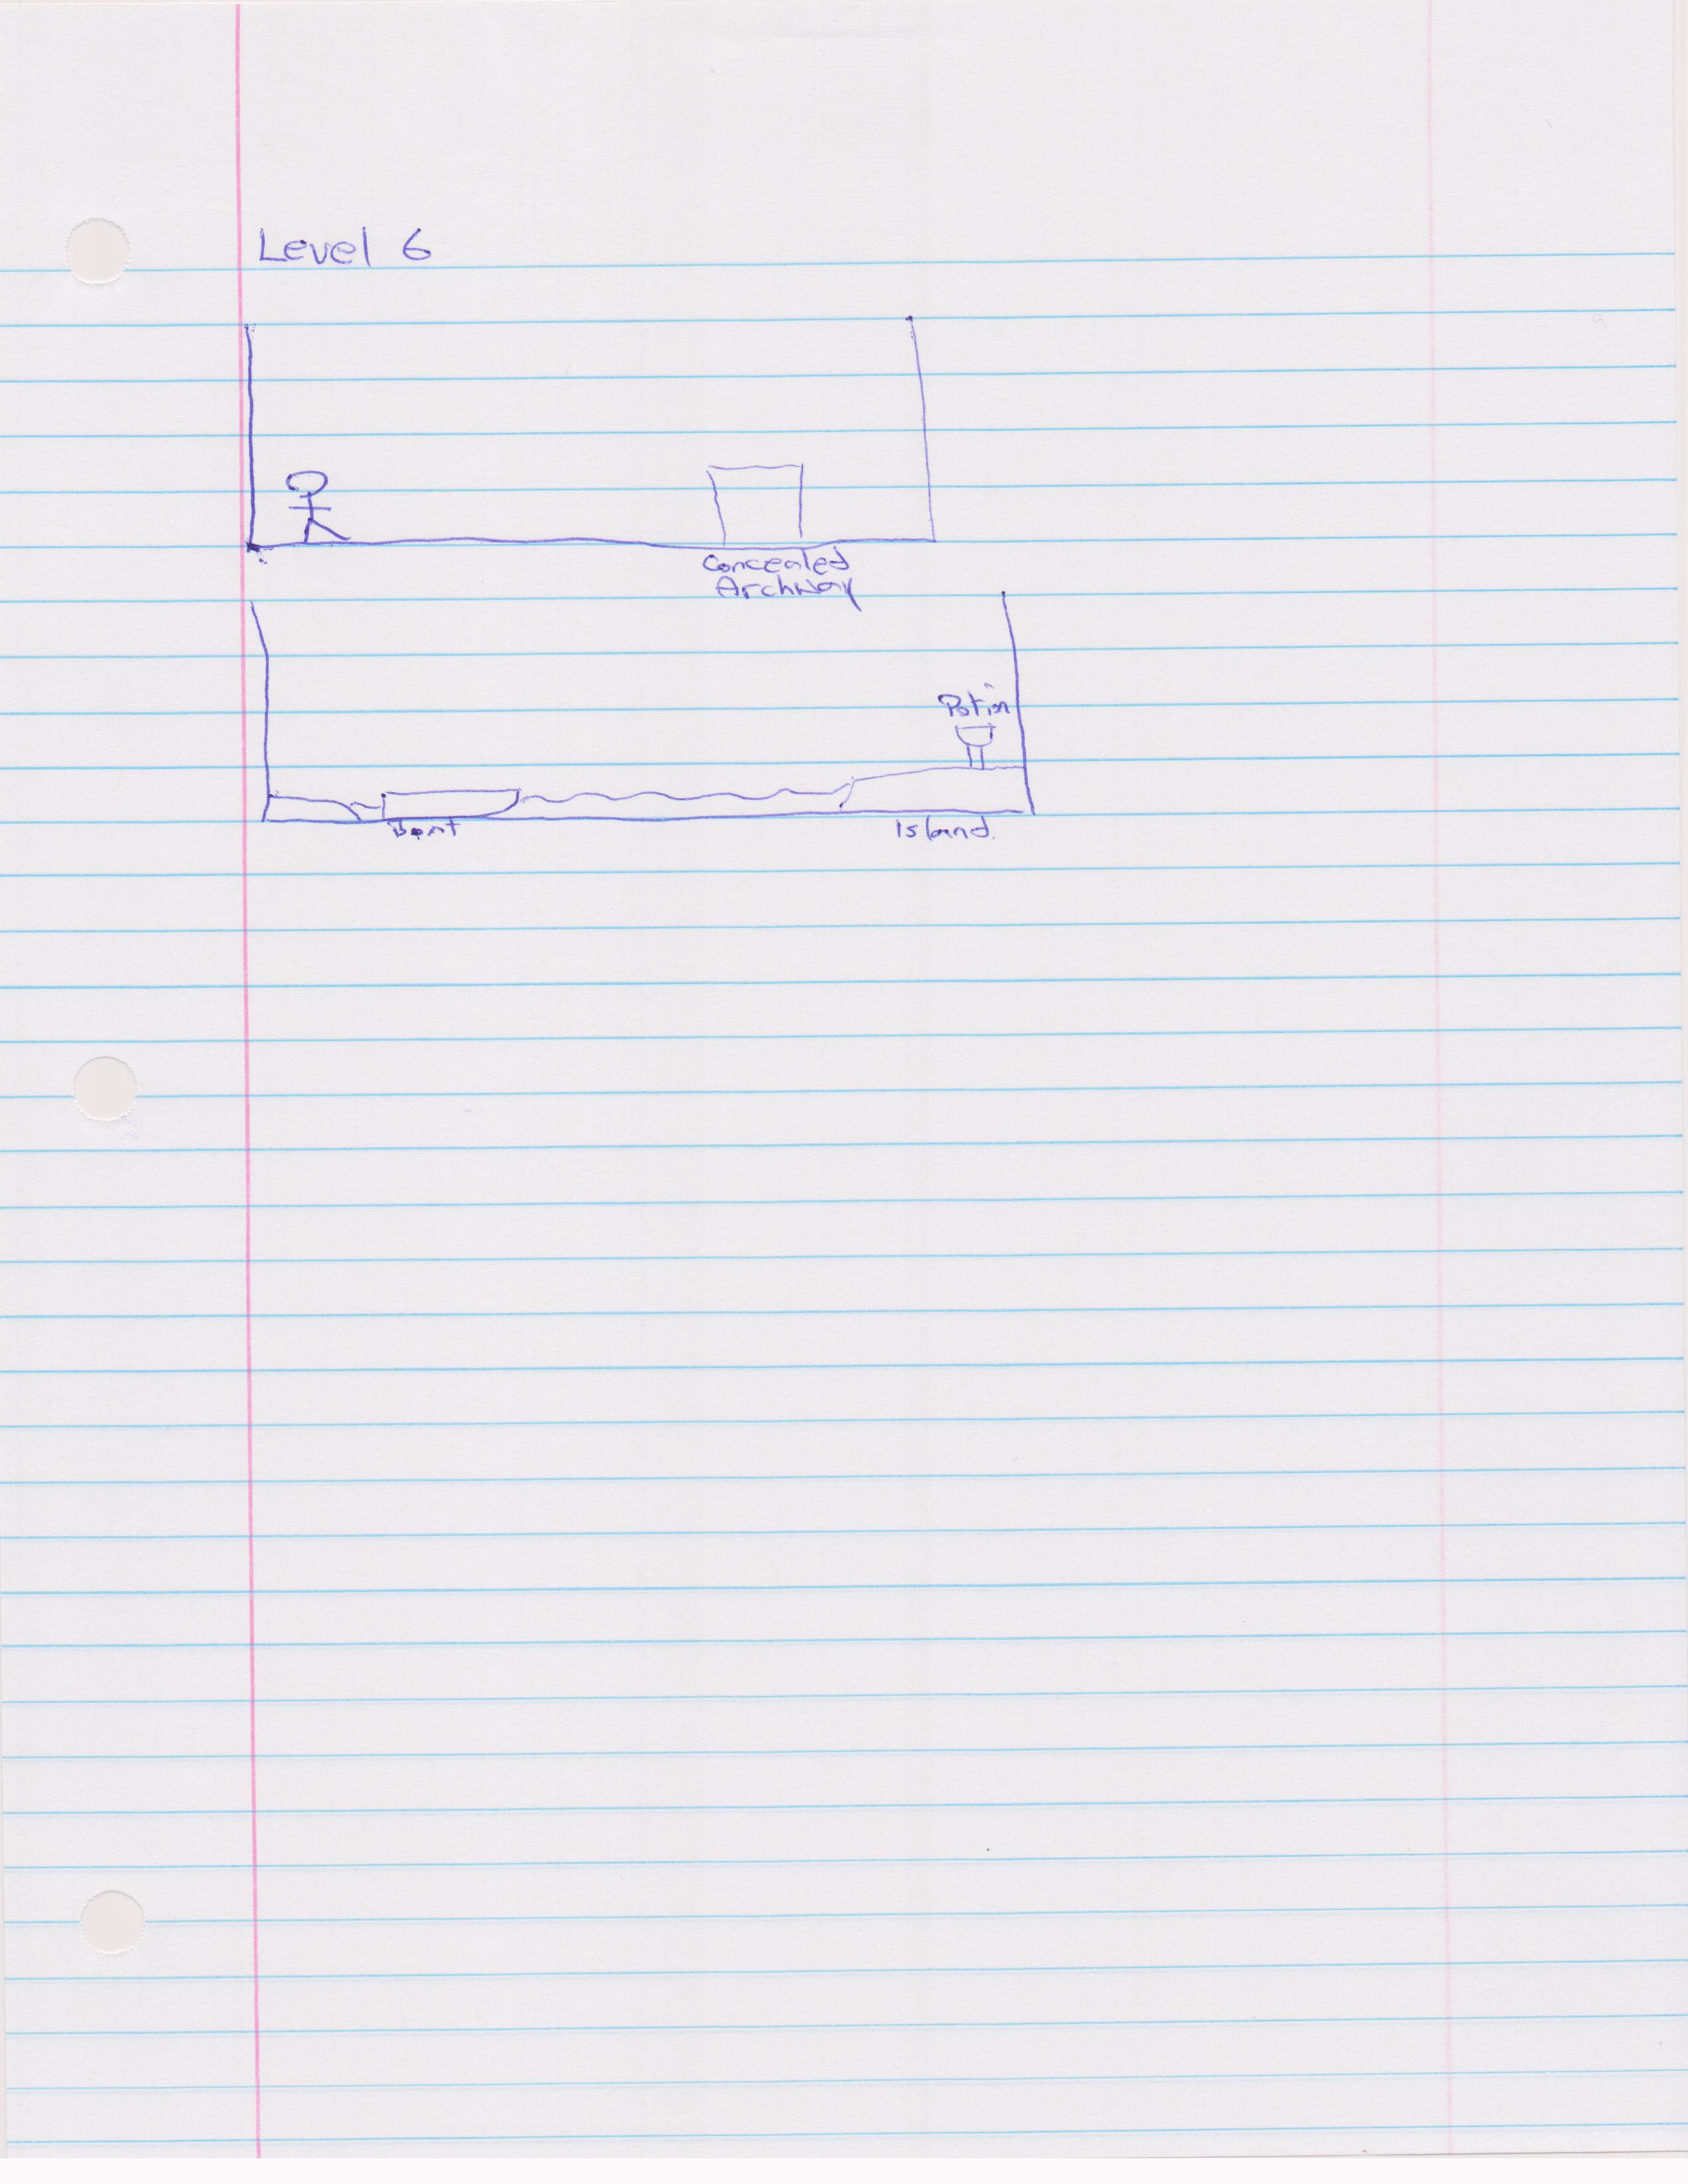 Level 6
Concealed
Archway
Potion
Boat
Island.